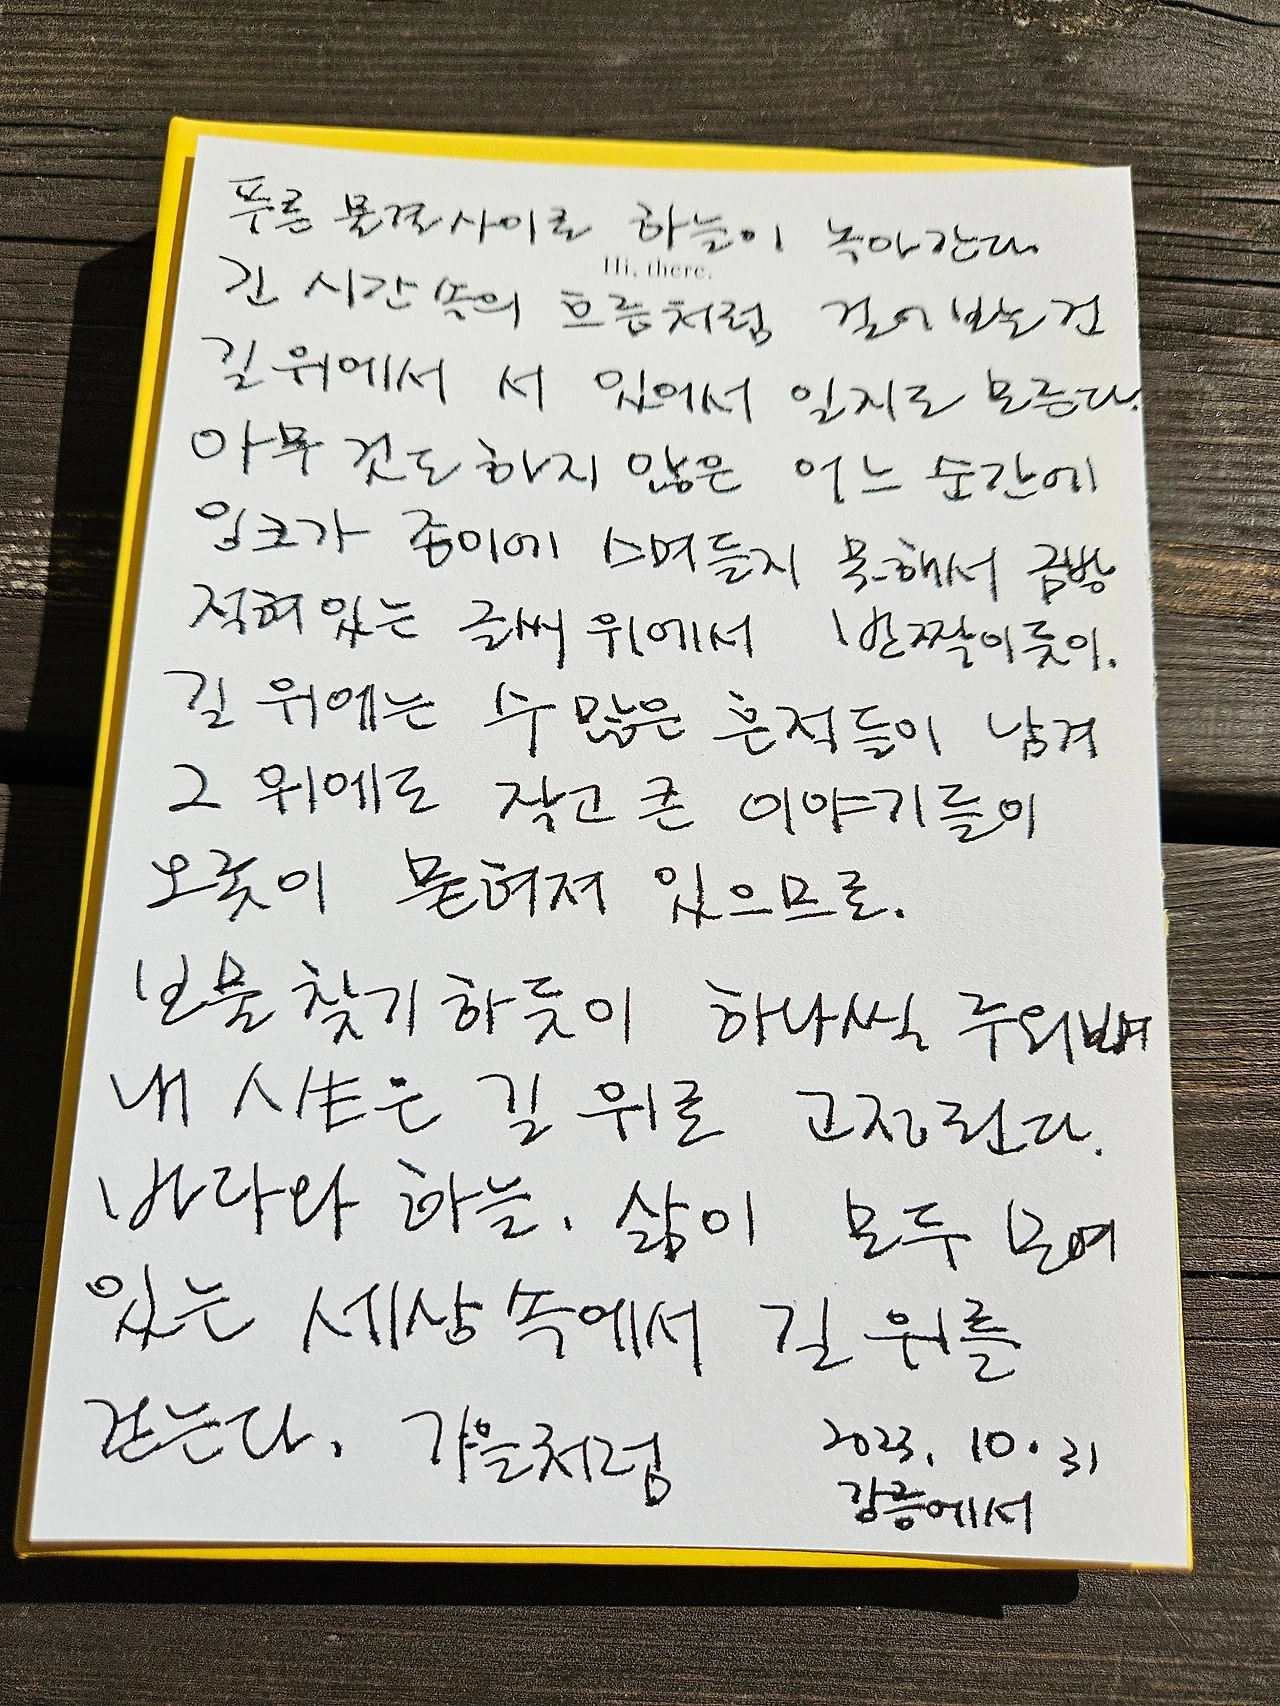 푸른 물결 사이로 하늘이 녹아간다
Hi, there.
긴 시간 속의 흐름처럼 걸어 보는 건
길 위에서 서 있어서 일지도 모른다.
아무 것도 하지 않은 어느 순간에
잉크가 종이에 스며들지 못해서 금방
적혀 있는 글씨 위에서 반짝이듯이.
길 위에는 수 많은 흔적들이 남겨
그 위에도 작고 큰 이야기들이
오롯이 묻혀져 있으므로.
보물 찾기 하듯이 하나씩 주워보며
내 시선은 길 위로 고정된다.
바다와 하늘. 삶이 모두 모여
있는 세상 속에서 길 위를
걷는다. 가을처럼
2023. 10. 31
강릉에서